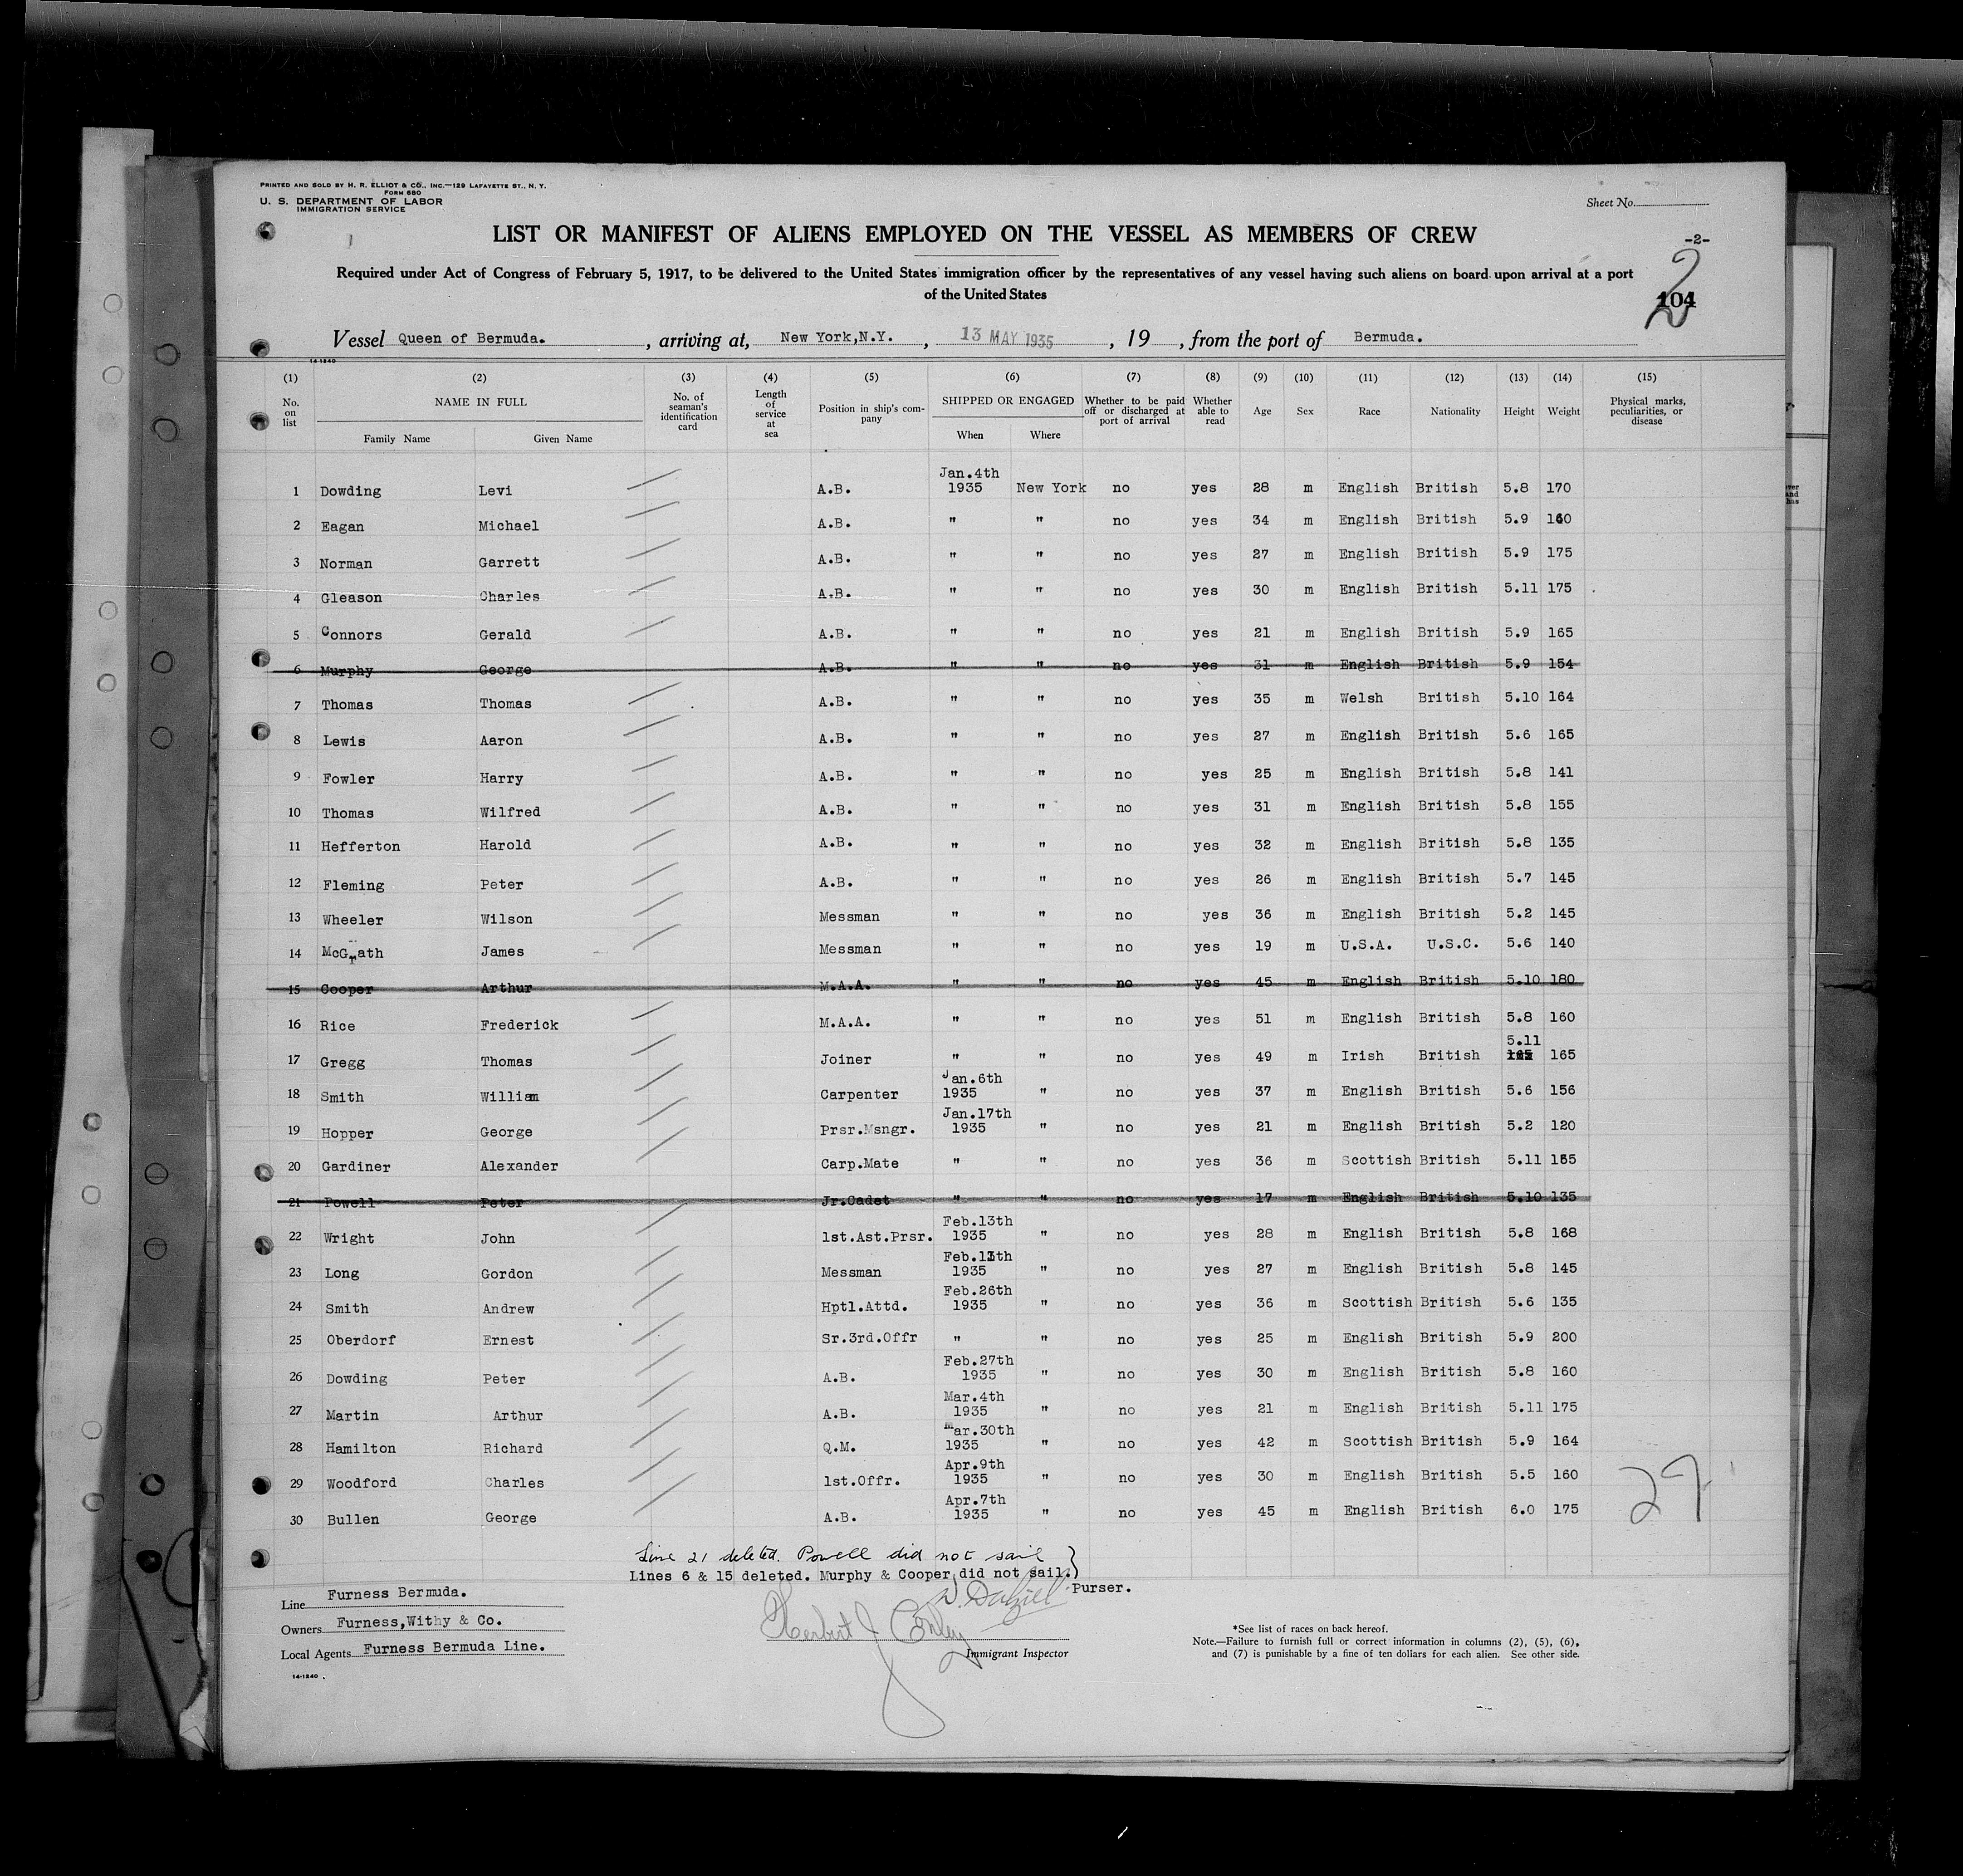 PRINTED AND SOLD BY H. R. ELLIOT & CO., INC.—129 LAFAYETTE ST., N. Y.
FORM 680
U. S. DEPARTMENT OF LABOR
IMMIGRATION SERVICE
Sheet No.
LIST OR MANIFEST OF ALIENS EMPLOYED ON THE VESSEL AS MEMBERS OF CREW
-2-
Required under Act of Congress of February 5, 1917, to be delivered to the United States immigration officer by the representatives of any vessel having such aliens on board upon arrival at a port
of the United States
2
104
Vessel Queen of Bermuda. , arriving at, New York,N.Y. , 13 MAY 1935 , 19 , from the port of Bermuda.
14-1240
(1) (2) (3) (4) (5) (6) (7) (8) (9) (10) (11) (12) (13) (14) (15)
No. on list NAME IN FULL Family Name Given Name No. of seaman's identification card Length of service at sea Position in ship's company SHIPPED OR ENGAGED When Where Whether to be paid off or discharged at port of arrival Whether able to read Age Sex Race Nationality Height Weight Physical marks, peculiarities, or disease
1 Dowding Levi A.B. Jan.4th 1935 New York no yes 28 m English British 5.8 170
2 Eagan Michael A.B. " " no yes 34 m English British 5.9 160
3 Norman Garrett A.B. " " no yes 27 m English British 5.9 175
4 Gleason Charles A.B. " " no yes 30 m English British 5.11 175
5 Connors Gerald A.B. " " no yes 21 m English British 5.9 165
6 Murphy George A.B. " " no yes 31 m English British 5.9 154
7 Thomas Thomas A.B. " " no yes 35 m Welsh British 5.10 164
8 Lewis Aaron A.B. " " no yes 27 m English British 5.6 165
9 Fowler Harry A.B. " " no yes 25 m English British 5.8 141
10 Thomas Wilfred A.B. " " no yes 31 m English British 5.8 155
11 Hefferton Harold A.B. " " no yes 32 m English British 5.8 135
12 Fleming Peter A.B. " " no yes 26 m English British 5.7 145
13 Wheeler Wilson Messman " " no yes 36 m English British 5.2 145
14 McGrath James Messman " " no yes 19 m U.S.A. U.S.C. 5.6 140
15 Cooper Arthur M.A.A. " " no yes 45 m English British 5.10 180
16 Rice Frederick M.A.A. " " no yes 51 m English British 5.8 160
17 Gregg Thomas Joiner " " no yes 49 m Irish British 5.11 165
18 Smith William Carpenter Jan.6th 1935 " no yes 37 m English British 5.6 156
19 Hopper George Prsr.Msngr. Jan.17th 1935 " no yes 21 m English British 5.2 120
20 Gardiner Alexander Carp.Mate " " no yes 36 m Scottish British 5.11 155
21 Powell Peter Jr.Cadet " " no yes 17 m English British 5.10 135
22 Wright John 1st.Ast.Prsr. Feb.13th 1935 " no yes 28 m English British 5.8 168
23 Long Gordon Messman 1935 " no yes 27 m English British 5.8 145
24 Smith Andrew Hptl.Attd. Feb.26th 1935 " no yes 36 m Scottish British 5.6 135
25 Oberdorf Ernest Sr.3rd.Offr " " no yes 25 m English British 5.9 200
26 Dowding Peter A.B. Feb.27th 1935 " no yes 30 m English British 5.8 160
27 Martin Arthur A.B. Mar.4th 1935 " no yes 21 m English British 5.11 175
28 Hamilton Richard Q.M. Mar.30th 1935 " no yes 42 m Scottish British 5.9 164
29 Woodford Charles 1st.Offr. Apr.9th 1935 " no yes 30 m English British 5.5 160
30 Bullen George A.B. Apr.7th 1935 " no yes 45 m English British 6.0 175
27
Line 21 deleted. Powell did not sail )
Lines 6 & 15 deleted. Murphy & Cooper did not sail.)
Purser.
Line Furness Bermuda.
Owners Furness,Withy & Co.
Local Agents Furness Bermuda Line.
Herbert J Conley
Immigrant Inspector
*See list of races on back hereof.
Note.—Failure to furnish full or correct information in columns (2), (5), (6),
and (7) is punishable by a fine of ten dollars for each alien. See other side.
14-1240